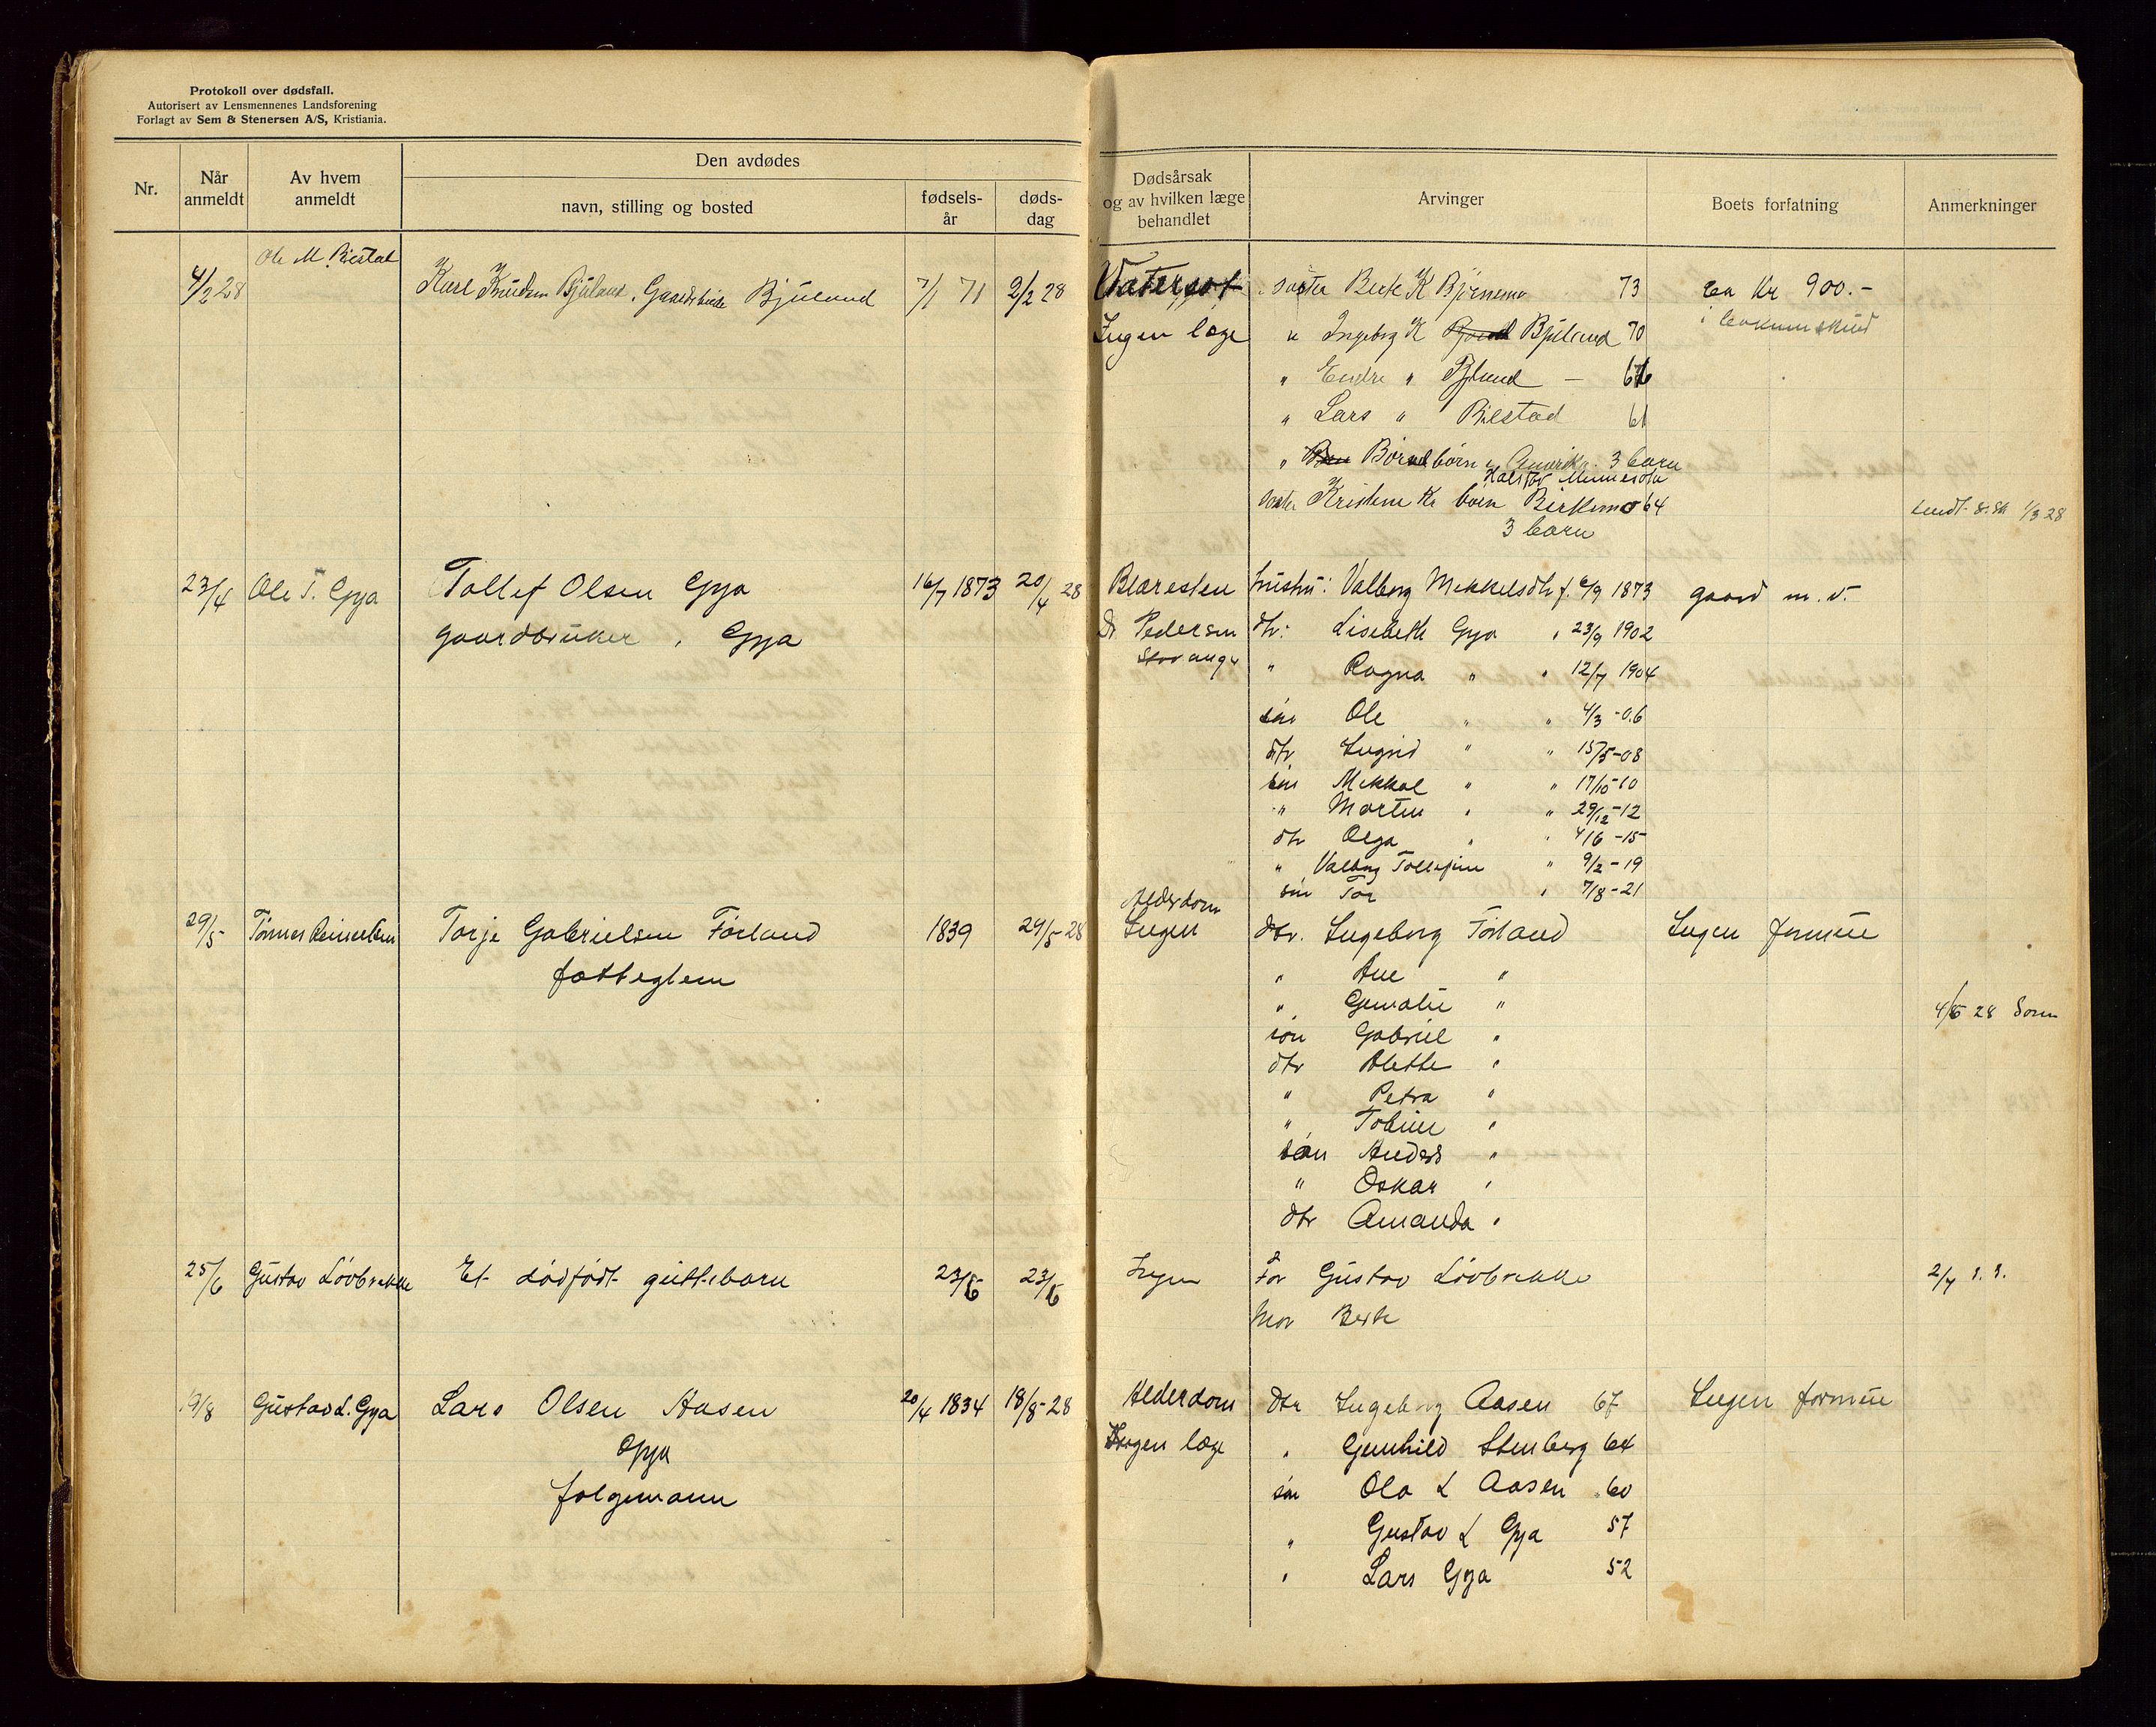 Protokoll over dødsfall.
Autorisert av Lensmennenes Landsforening
Forlagt av Sem & Stenersen A/S, Kristiania.
Nr.
Når anmeldt
Av hvem anmeldt
Den avdødes
navn, stilling og bosted
fødsels-år
døds-dag
Dødsårsak og av hvilken læge behandlet
Arvinger
Boets forfatning
Anmerkninger
4/2 28 Ole M. Bilstad Karl Knudsen Bjuland, Bjuland 7/1 71 2/2 28 Vatersot søster K Bjørnemo 73 ca Kr 900.-
Ingen læge " Ingeborg K Bjuland 70
" Endre " -
" Lars " Bilstad 61
" børn 3 barn
Minnesota
Kr barn Birkemo 64 1/3 28
3 barn
23/4 Ole T. Gya Tollef Olsen Gya 16/7 1873 20/4 28 Blæresten hustru: Valborg Mikkelsdtr f. 6/9 1873 gaard m. v.
gaardbruker, Gya Dr. Pedersen dtr: Lisebeth Gya " 23/9 1902
Stavanger " Ragna " " 12/7 1904
søn Ole " " 4/3 -06
dtr Ingrid " " 15/5-08
søn Mikkal " " 17/10-10
" Morten " " 29/12-12
dtr Olga " " 4/6 -15
" Valborg " 9/2 -19
søn Tor " 7/8-21
Alderdom
29/5 Tønnes Torje Gabrielsen Förland 1839 24/5 28 Ingen dtr. Ingeborg Förland Ingen formue
fattiglem " Ane "
" " 4/6 28
søn Gabriel "
dtr Alette "
" Petra "
" Toline "
søn Anders "
" Oskar "
dtr Amanda "
25/6 Gustav Lövbrekke Et dødfødt guttebarn 23/6 23/6 Ingen Far Gustav Lövbrekke 2/7 s. s.
Mor Berte
19/8 Gustav L. Gya Lars Olsen Aasen 20/4 1834 18/8-28 Alderdom Dtr Ingeborg Aasen 67 Ingen formue
Gya Ingen læge " Gunhild Stenberg 64
folgemann søn Ola L Aasen 60
" Gustav L Gya 57
" Lars Gya 52